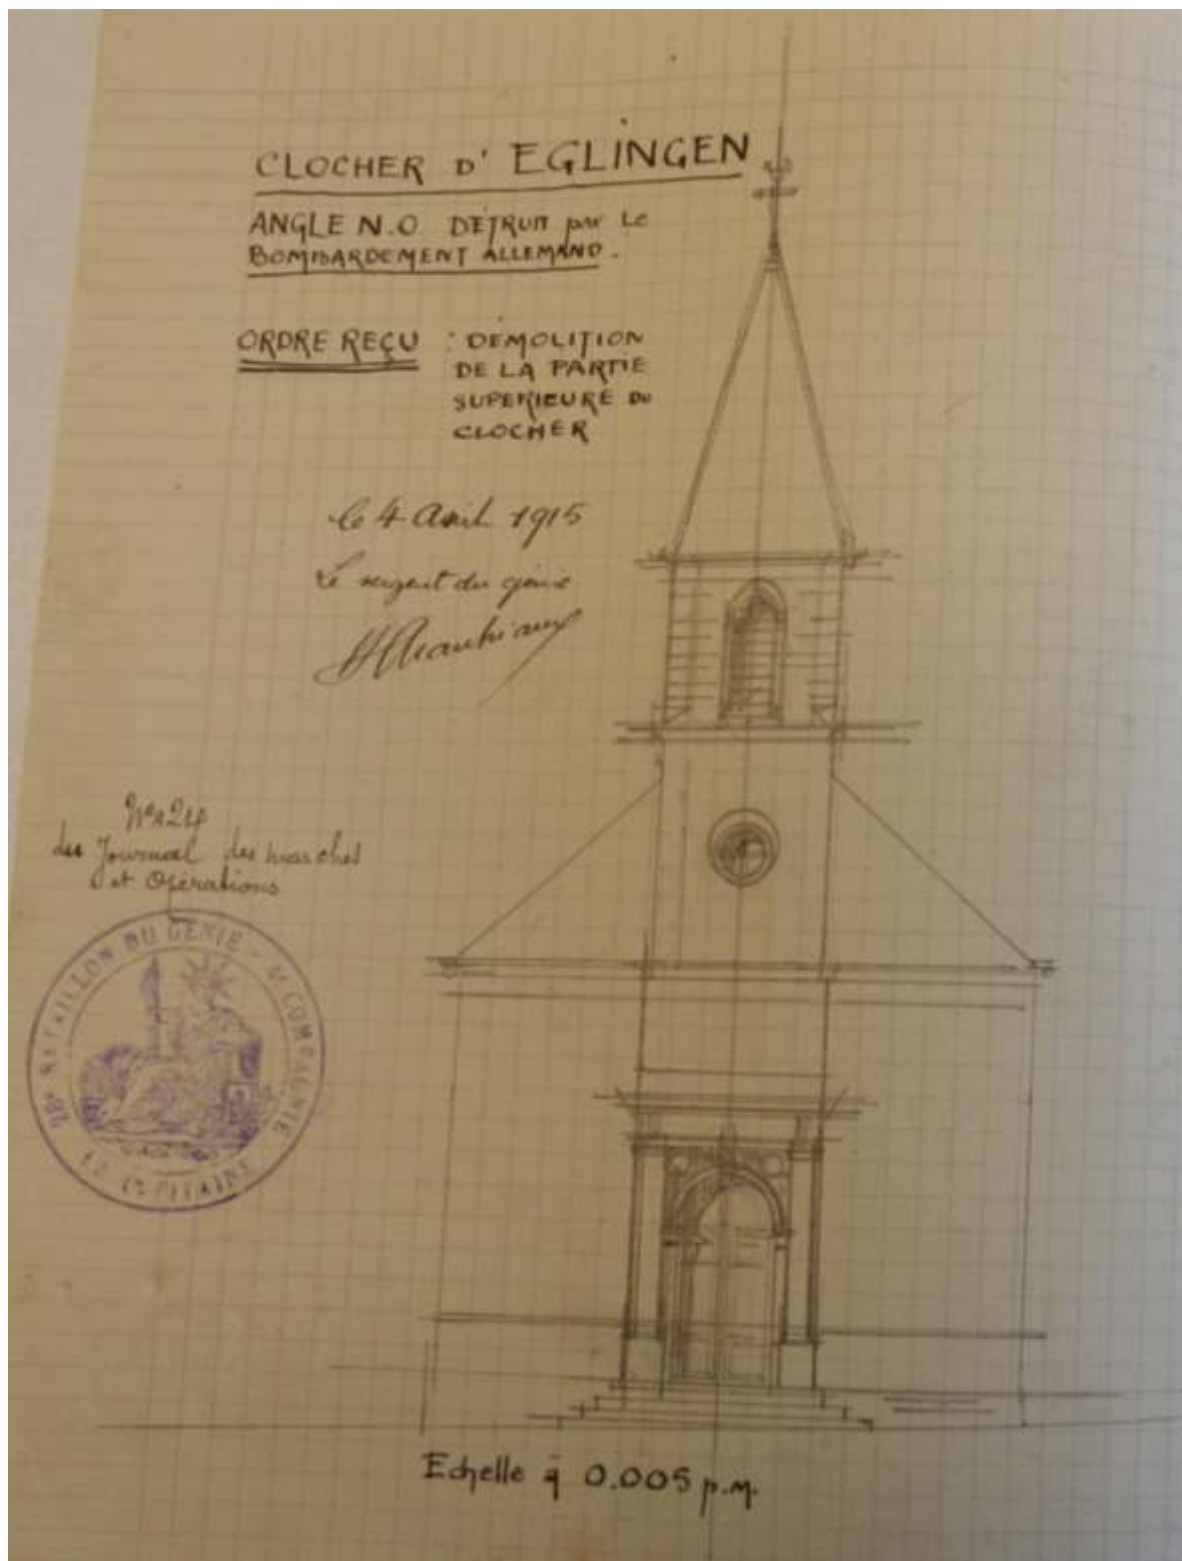 CLOCHER D' EGLINGEN
ANGLE N.O. DÉTRUIT par Le
BOMBARDEMENT ALLEMAND.
ORDRE REÇU : DÉMOLITION
DE LA PARTIE
SUPERIEURE DU
CLOCHER
le 4 Avril 1915
Le sergent du génie
du Journal des marches
et Opérations
28e BATAILLON DU GENIE - 1e COMPAGNIE
LE CAPITAINE
Echelle à 0.005 p.m.